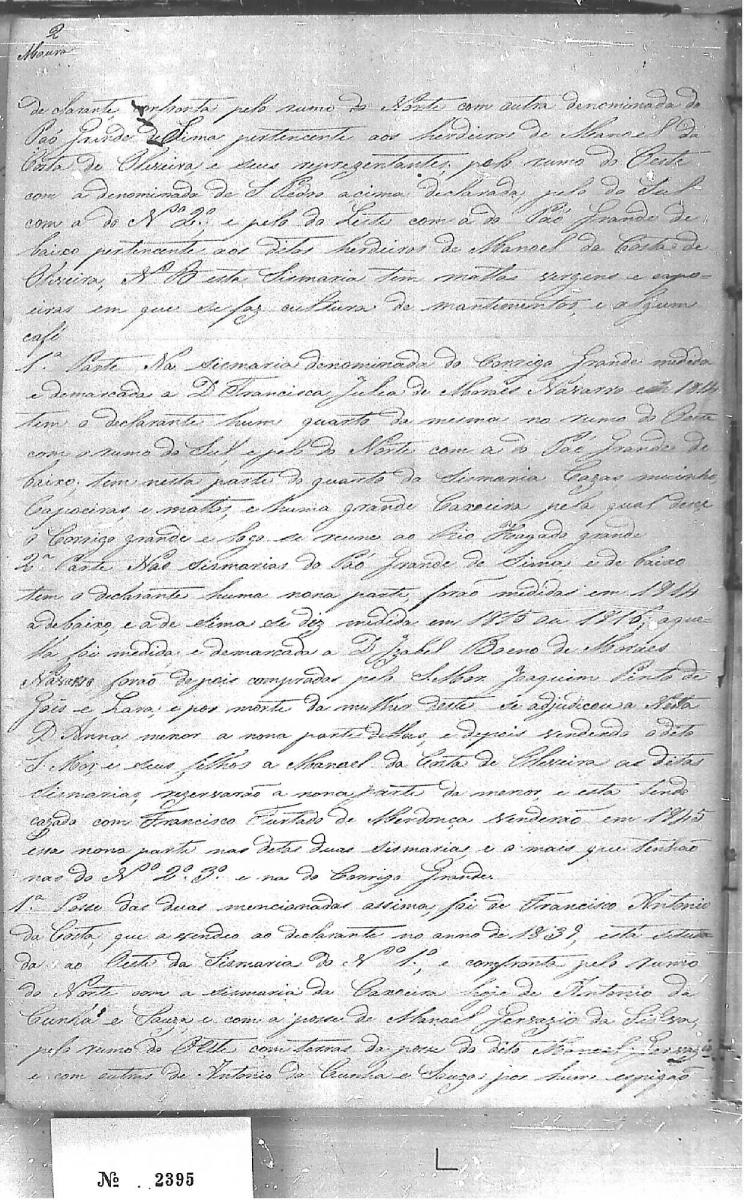 2
Moura
declarante, confronta pelo rumo do Norte com outra denominada do
Páo Grande de Sima pertencente aos herdeiros de Manoel da
Costa de Oliveira, e seus reprezentantes; pelo rumo do Oeste
com a denominada de S. Pedro acima declarada, pelo do Sul
com a do Nº 2º, e pelo do Leste com a do Páo Grande de
baixo pertencente aos ditos herdeiros de Manoel da Costa de
Oliveira, N. B esta Sismaria tem mattos virgens e capo=
eiras em que se faz cultura de mantimentos e algum
café
1.ª Parte Na sismaria denominada do Corrigo Grande medida
e demarcada a D Francisca Julia de Moraes Navarro em 1814
tem o declarante hum quarto da mesma no rumo do Oeste
com o rumo do Sul, e pelo do Norte com a do Páo Grande de
baixo, tem nesta parte do quarto da sismaria Cazas muinho
Capoeiras e mattos, e huma grande Caxoeira pela qual desce
o Corrigo grande e logo se reune ao Rio grande
2.ª Parte Nas sismarias do Páo Grande de Sima e de baixo
tem o declarante huma nona parte, forão medidas em 1914
a de baixo, e a de sima se diz medida em 1815 ou 1816, aque=
lla foi medida e demarcada a D. Izabel Bueno de Moraes
Navarro forão depois compradas pelo Joaquim Pinto de
Góes e Lara, e por morte da mulher deste se adjudicou a Neta
D Anna menor a nona parte dellas, e depois vendendo o dito
S Mor, e seus filhos a Manoel da Costa de Oliveira as ditas
sismarias, rezervarão a nona parte da menor, e esta sendo
cazada com Francisco Furtado de Mendonça venderão em 1845
essa nona parte nas ditas duas sismarias e o mais que tenhão
nas do Nº 2º 3º e na do Corrigo Grande.
1.ª Posse das duas mencionadas assima, foi de Francisco Antonio
da Costa, que a vendeo ao declarante no anno de 1839, está situa
da ao Oeste da Sismaria do Nº 1º, e comfronta pelo rumo
do Norte com a sismaria da Caxoeira hoje de Antonio da
Cunha e Souza, e com a posse de Manoel Gervazio da Silva,
pelo rumo do Oeste com terras da posse do dito Manoel Gervazio
e com outras de Antonio da Cunha e Souza; por hum espigão
Nº 2395